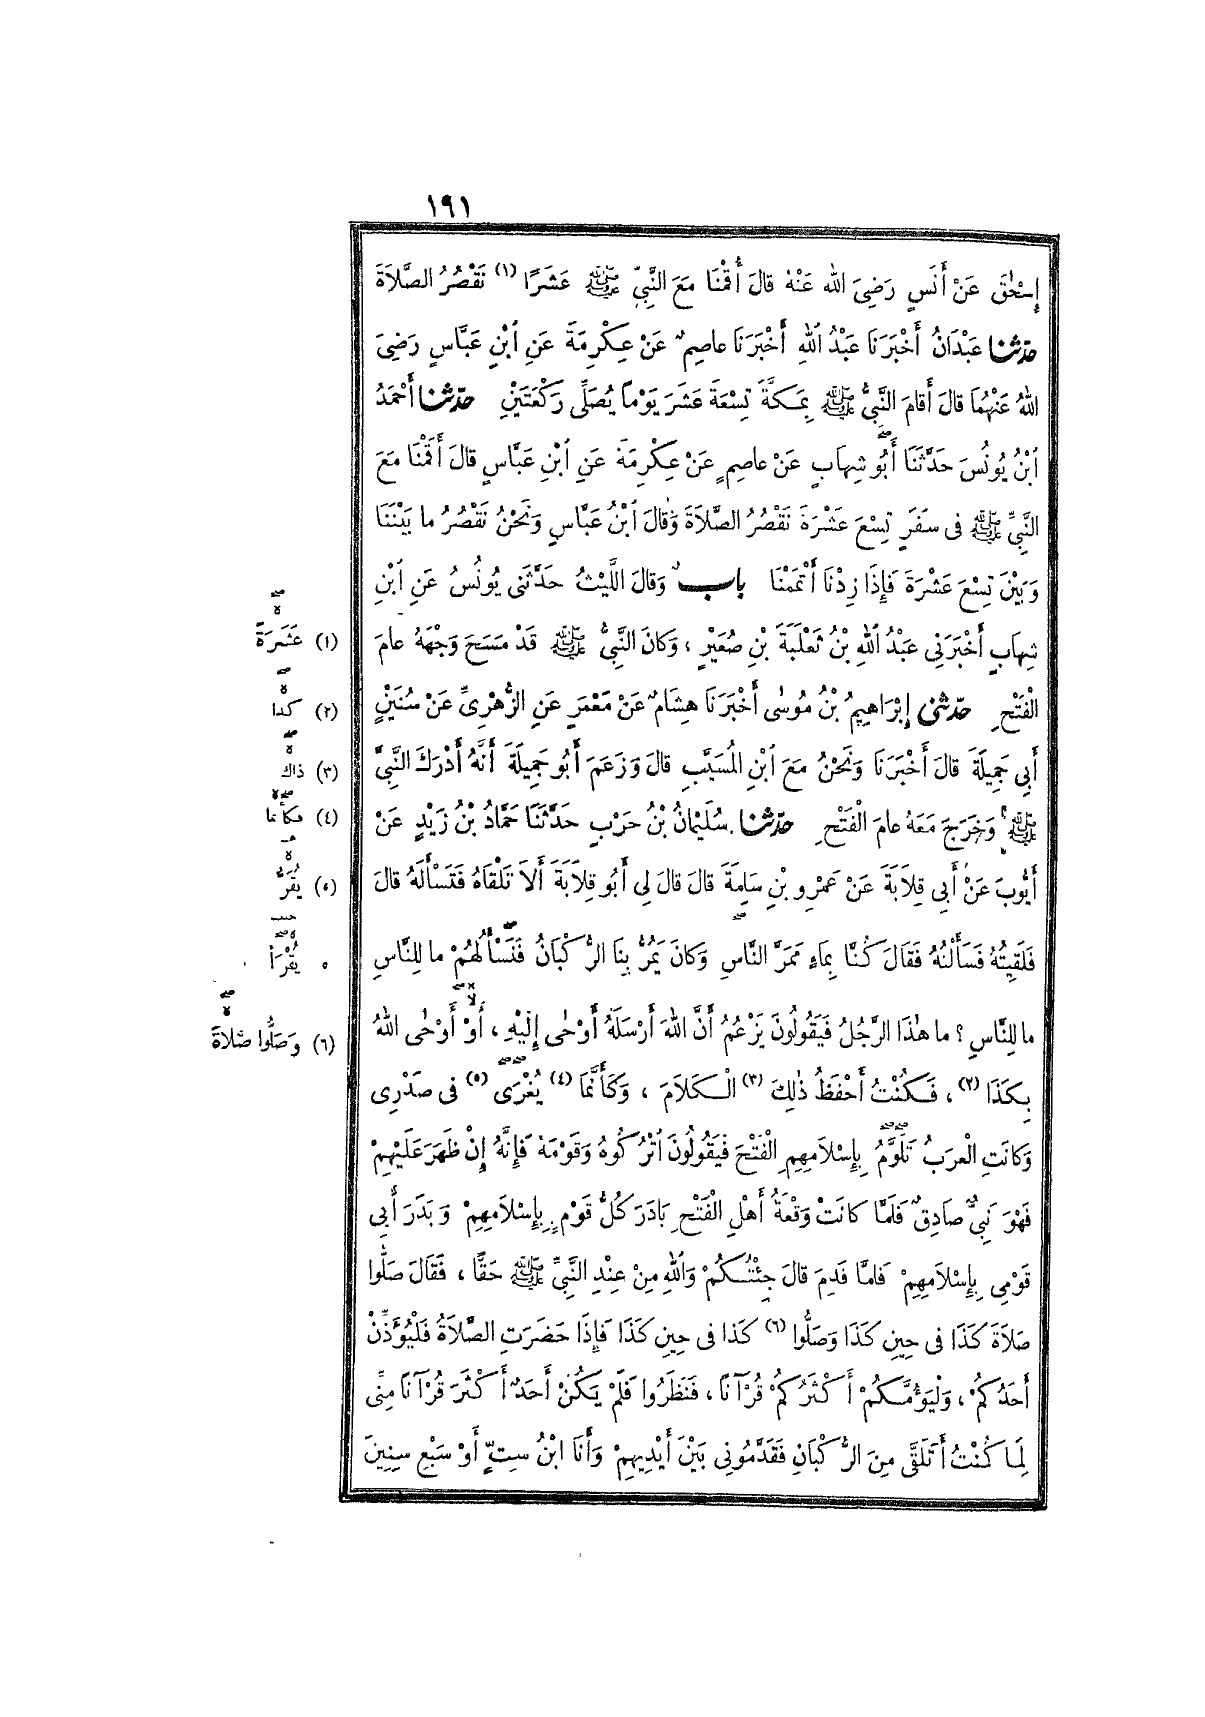 ١٩١
إِسْحٰقَ عَنْ أَنَسٍ رَضِيَ اللهُ عَنْهُ قالَ أَقَمْنَا مَعَ النَّبِيِّ ﷺ عَشَرًا (١) نَقْصُرُ الصَّلَاةَ
حدّثنا عَبْدَانُ أَخْبَرَنَا عَبْدُ اللهِ أَخْبَرَنَا عاصِمٌ عَنْ عِكْرِمَةَ عَنِ ابْنِ عَبَّاسٍ رَضِيَ
اللهُ عَنْهُمَا قالَ أَقامَ النَّبِيُّ ﷺ بِمَكَّةَ تِسْعَةَ عَشَرَ يَوْماً يُصَلِّي رَكْعَتَيْنِ حدّثنا أَحْمَدُ
ابْنُ يُونُسَ حَدَّثَنَا أَبُو شِهَابٍ عَنْ عاصِمٍ عَنْ عِكْرِمَةَ عَنِ ابْنِ عَبَّاسٍ قالَ أَقَمْنَا مَعَ
النَّبِيِّ ﷺ فى سَفَرٍ تِسْعَ عَشْرَةَ نَقْصُرُ الصَّلَاةَ وَقالَ ابْنُ عَبَّاسٍ وَنَحْنُ نَقْصُرُ ما بَيْنَنَا
وَبَيْنَ تِسْعَ عَشْرَةَ فَإِذَا زِدْنَا أَتْمَمْنَا بابٌ وَقالَ اللَّيْثُ حَدَّثَنِى يُونُسُ عَنِ ابْنِ
شِهَابٍ أَخْبَرَنِى عَبْدُ اللهِ بْنُ ثَعْلَبَةَ بْنِ صُعَيْرٍ ، وَكانَ النَّبِيُّ ﷺ قَدْ مَسَحَ وَجْهَهُ عامَ
الْفَتْحِ حدّثنى إِبْرَاهِيمُ بْنُ مُوسٰى أَخْبَرَنَا هِشَامٌ عَنْ مَعْمَرٍ عَنِ الزُّهْرِىِّ عَنْ سُنَيْنٍ
أَبِى جَمِيلَةَ قالَ أَخْبَرَنَا وَنَحْنُ مَعَ ابْنِ الْمُسَيَّبِ قالَ وَزَعَمَ أَبُو جَمِيلَةَ أَنَّهُ أَدْرَكَ النَّبِيَّ
ﷺ وَخَرَجَ مَعَهُ عامَ الْفَتْحِ حدّثنا سُلَيْمانُ بْنُ حَرْبٍ حَدَّثَنَا حَمَّادُ بْنُ زَيْدٍ عَنْ
أَيُّوبَ عَنْ أَبِى قِلَابَةَ عَنْ عَمْرِو بْنِ سَلِمَةَ قالَ قالَ لِى أَبُو قِلَابَةَ أَلَا تَلْقَاهُ فَتَسْأَلَهُ قالَ
فَلَقِيتُهُ فَسَأَلْتُهُ فَقَالَ كُنَّا بِماءٍ مَمَرَّ النَّاسِ وَكانَ يَمُرُّ بِنَا الرُّكْبَانُ فَنَسْأَلُهُمْ ما لِلنَّاسِ
ما لِلنَّاسِ ؟ ما هٰذَا الرَّجُلُ فَيَقُولُونَ يَزْعُمُ أَنَّ اللهَ أَرْسَلَهُ أَوْحٰى إِلَيْهِ ، أَوْ أَوْحٰى اللهُ
بِكَذَا (٢) ، فَكُنْتُ أَحْفَظُ ذٰلِكَ (٣) الْكَلَامَ ، وَكَأَنَّمَا (٤) يُغْرَى (٥) فى صَدْرِى
وَكانَتِ الْعَرَبُ تَلَوَّمُ بِإِسْلَامِهِمِ الْفَتْحَ فَيَقُولُونَ اتْرُكُوهُ وَقَوْمَهُ فَإِنَّهُ إِنْ ظَهَرَ عَلَيْهِمْ
فَهْوَ نَبِيٌّ صَادِقٌ فَلَمَّا كانَتْ وَقْعَةُ أَهْلِ الْفَتْحِ بادَرَ كُلُّ قَوْمٍ بِإِسْلَامِهِمْ وَبَدَرَ أَبِى
قَوْمِى بِإِسْلَامِهِمْ فَلَمَّا قَدِمَ قالَ جِئْتُكُمْ وَاللهِ مِنْ عِنْدِ النَّبِيِّ ﷺ حَقًّا ، فَقَالَ صَلُّوا
صَلَاةَ كَذَا فى حِينِ كَذَا وَصَلُّوا (٦) كَذا فى حِينِ كَذَا فَإِذَا حَضَرَتِ الصَّلَاةُ فَلْيُؤَذِّنْ
أَحَدُكُمْ ، وَلْيَؤُمَّكُمْ أَكْثَرُكُمْ قُرْآناً ، فَنَظَرُوا فَلَمْ يَكُنْ أَحَدٌ أَكْثَرَ قُرْآناً مِنِّى
لِمَا كُنْتُ أَتَلَقَّى مِنَ الرُّكْبَانِ فَقَدَّمُونِى بَيْنَ أَيْدِيهِمْ وَأَنَا ابْنُ سِتٍّ أَوْ سَبْعِ سِنِينَ
(١) عَشَرَةً
(٢) كذا
(٣) ذاك
(٤) فكأنما
(٥) يُقَرُّ
يُقْرَأ
(٦) وَصَلُّوا صَلَاةَ